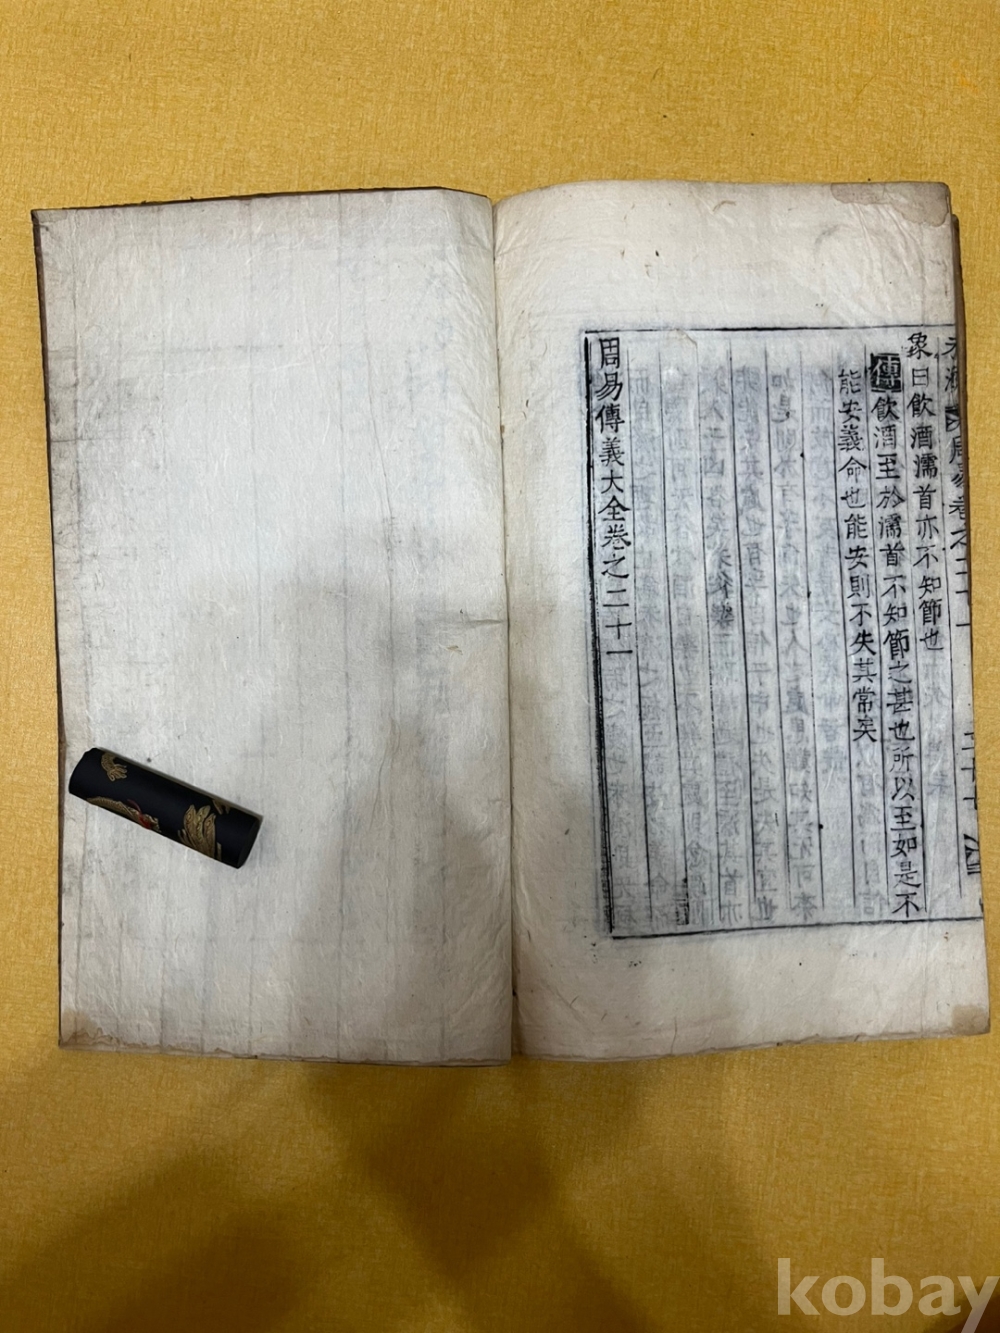 象曰飮酒濡首亦不知節也
傳飮酒至於濡首不知節之甚也所以至如是不
能安義命也能安則不失其常矣
周易傳義大全卷之二十一
kobay